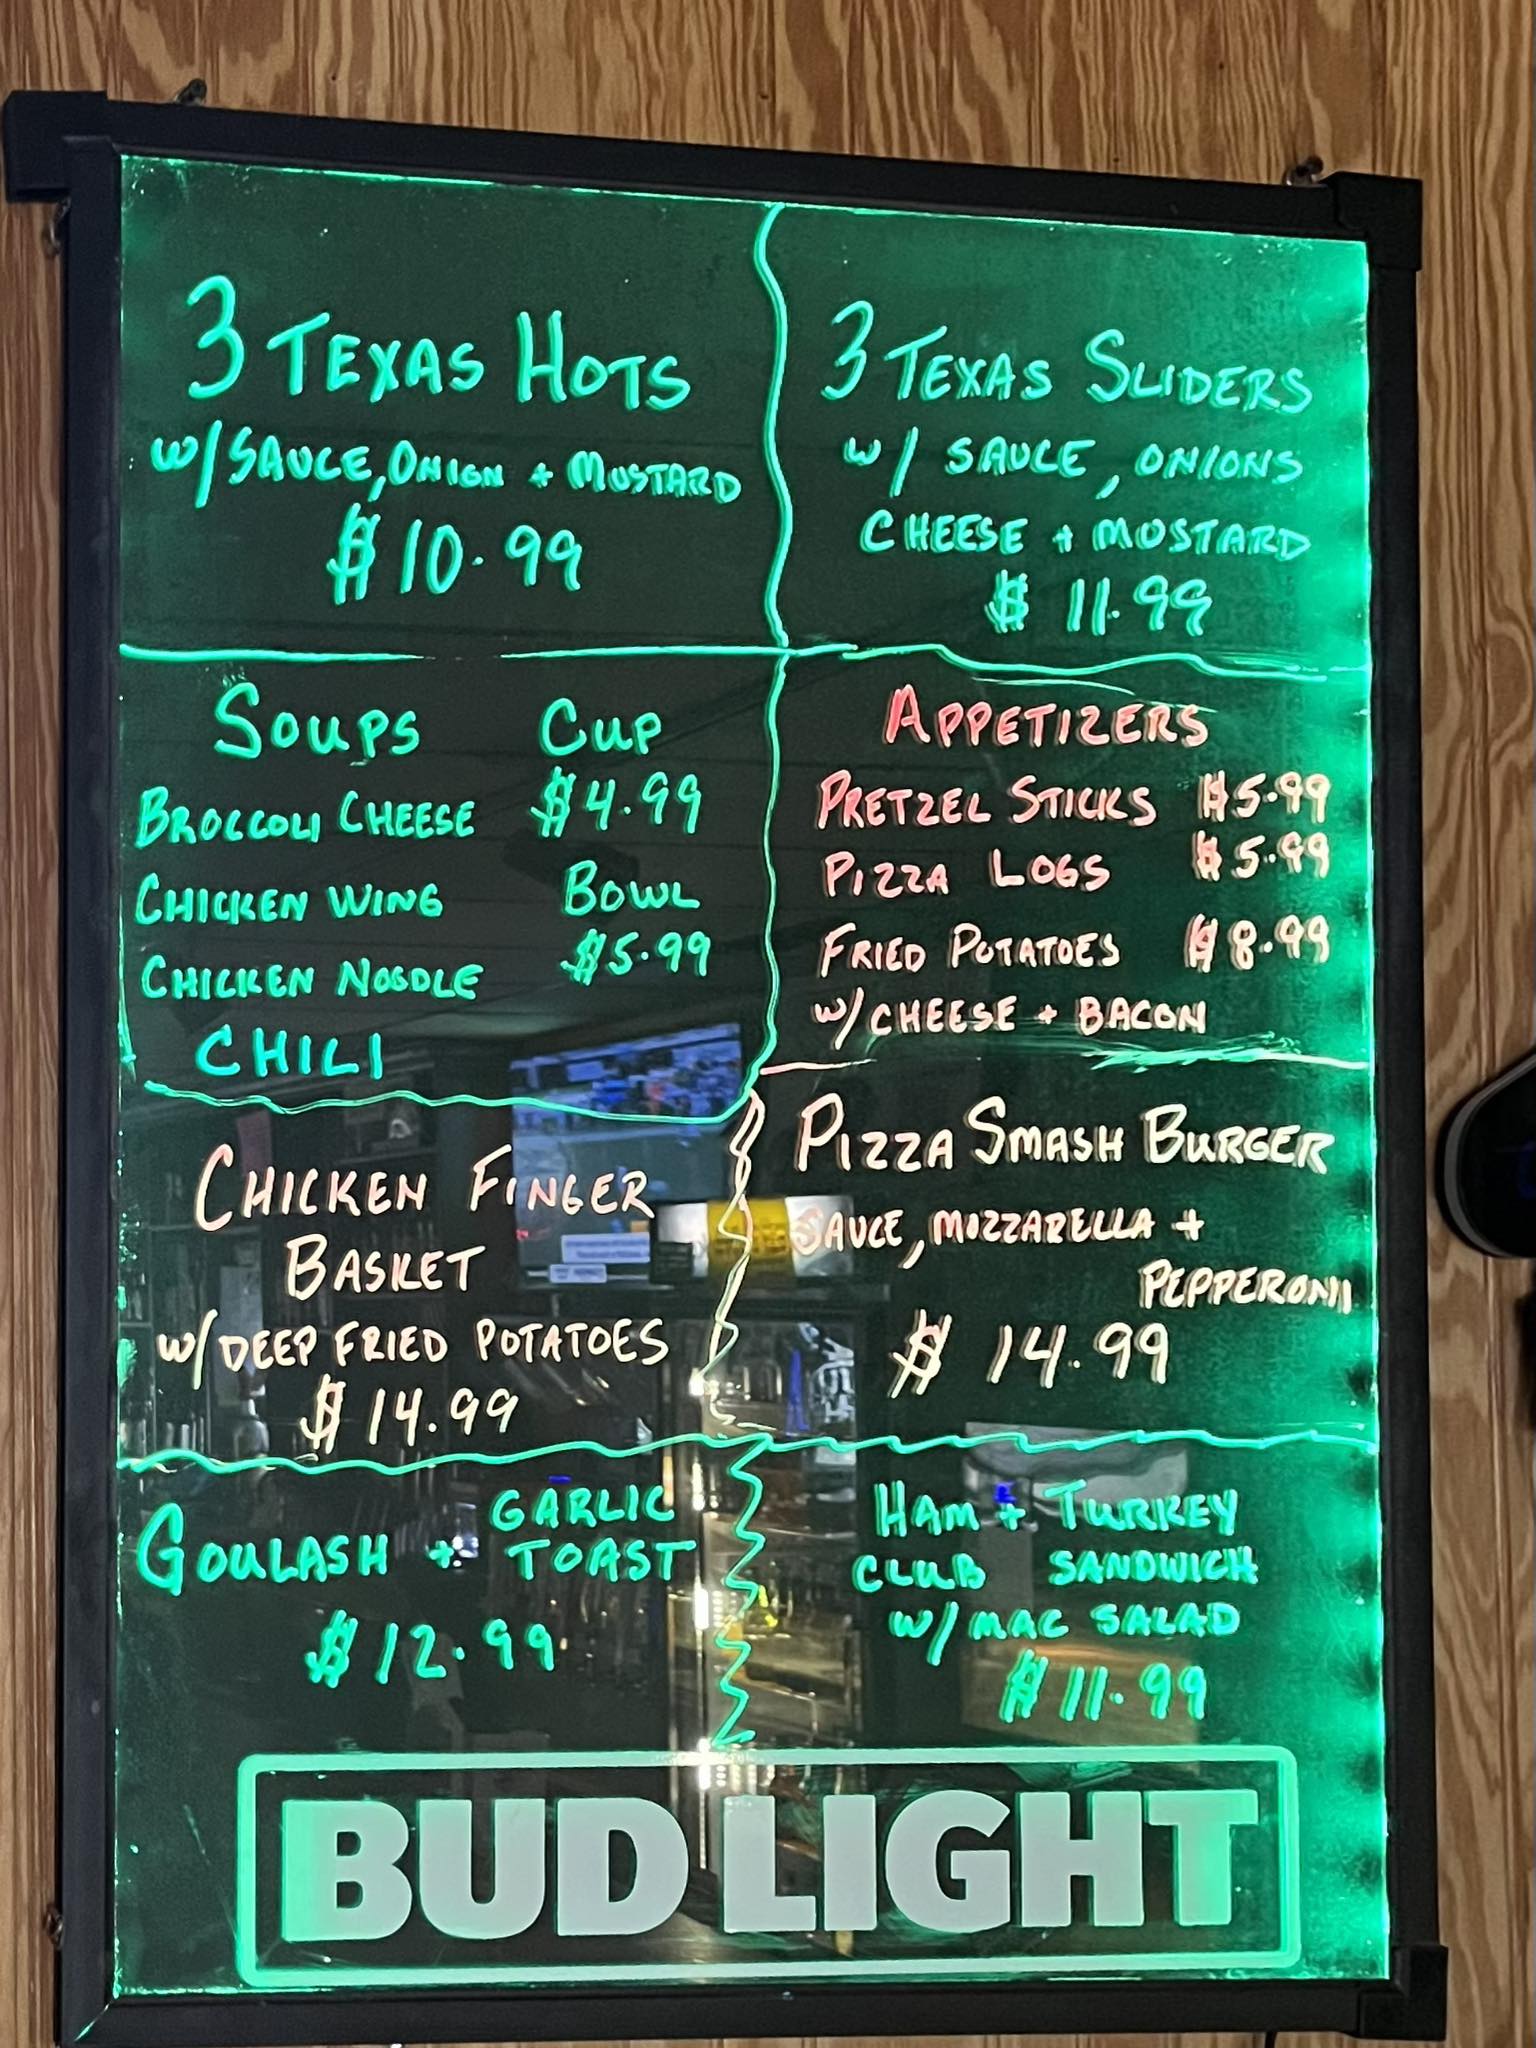 3 TEXAS HOTS
W/ SAUCE, ONION + MUSTARD
$10.99
3 TEXAS SLIDERS
W/ SAUCE, ONIONS
CHEESE + MUSTARD
$11.99
SOUPS CUP
BROCCOLI CHEESE $4.99
CHICKEN WING BOWL
CHICKEN NOODLE $5.99
CHILI
APPETIZERS
PRETZEL STICKS $5.99
PIZZA LOGS $5.99
FRIED POTATOES $8.99
W/ CHEESE + BACON
CHICKEN FINGER
BASKET
W/ DEEP FRIED POTATOES
$14.99
PIZZA SMASH BURGER
SAUCE, MOZZARELLA +
PEPPERONI
$14.99
GOULASH + GARLIC
TOAST
$12.99
HAM + TURKEY
CLUB SANDWICH
W/ MAC SALAD
$11.99
BUD LIGHT